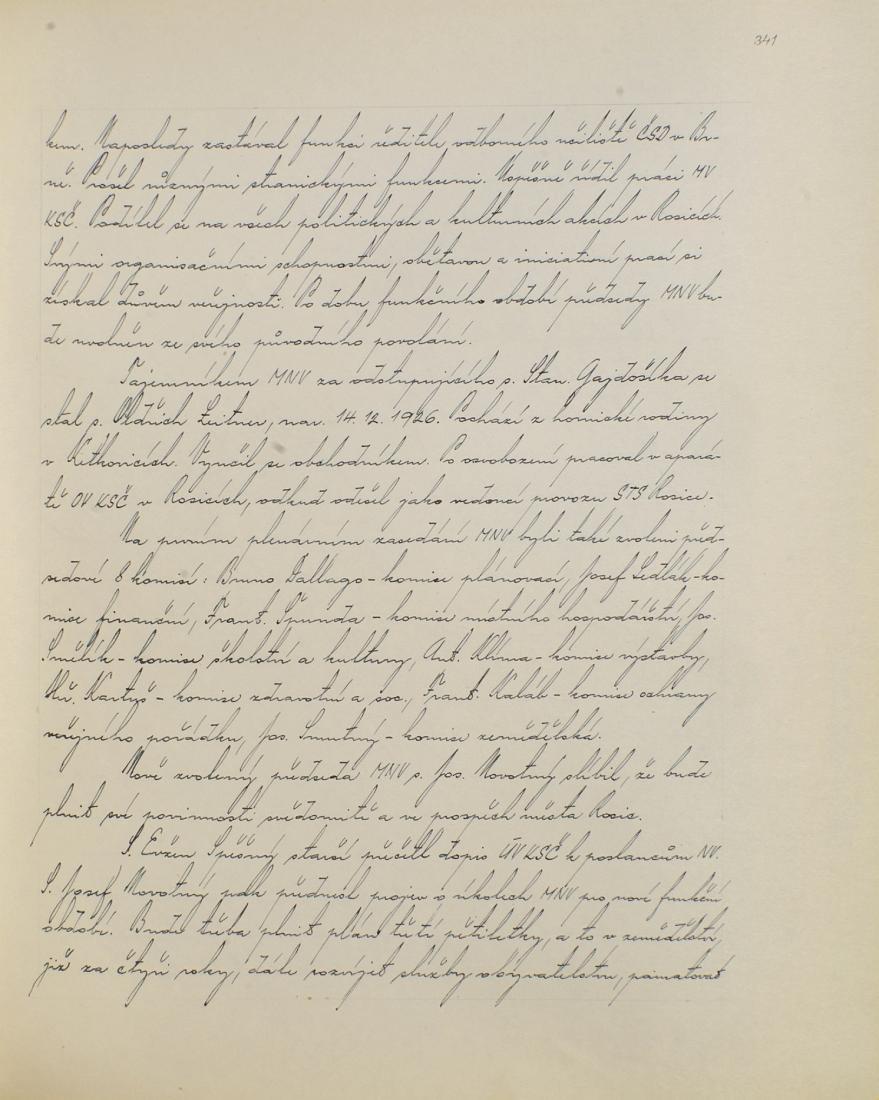 341
kem. Naposledy zastával funkci ředitele odborného učiliště ČSD v Br-
ně. Prošel různými stranickými funkcemi. Úspěšně řídil práci MV
KSČ. Podílel se na všech politických a kulturních akcích v Rosicích.
Svými organisačními schopnostmi, obětavou a iniciativní prací si
získal důvěru veřejnosti. Po dobu funkčního období předsedy MNV bu-
de uvolněn ze svého původního povolání.
Tajemníkem MNV za odstupujícího s. Stan. Gajdošíka se
stal s. Oldřich Zeitner, nar. 14. 12. 1926. Pochází z hornické rodiny
v Ketkovicích. Vyučil se obchodníkem. Po osvobození pracoval v apará-
tě OV KSČ v Rosicích, odkud odešel jako vedoucí provozu STS Rosice.
Na prvním plenárním zasedání MNV byli také zvoleni před-
sedové 8 komisí: Bruno Dallago - komise plánovací, Josef Sedlák - ko-
mise finanční, Frant. Špunda - komise místního hospodářství, Jos.
Smělík - komise školství a kultury, Ant. Klíma - komise výstavby,
Old. Kartyš - komise zdravotní a soc., Frant. Kaláb - komise ochrany
veřejného pořádku, Jos. Smutný - komise zemědělská.
Nově zvolený předseda MNV s. Jos. Novotný slíbil, že bude
plnit své povinnosti svědomitě a ve prospěch města Rosic.
S. Evžen Spěšný starší přečetl dopis ÚV KSČ k poslancům NV.
S. Josef Novotný pak přednesl projev o úkolech MNV pro nové funkční
období. Bude třeba plnit plán třetí pětiletky, a to v zemědělství,
již za čtyři roky, dále rozvíjet služby obyvatelstvu, pamatovat